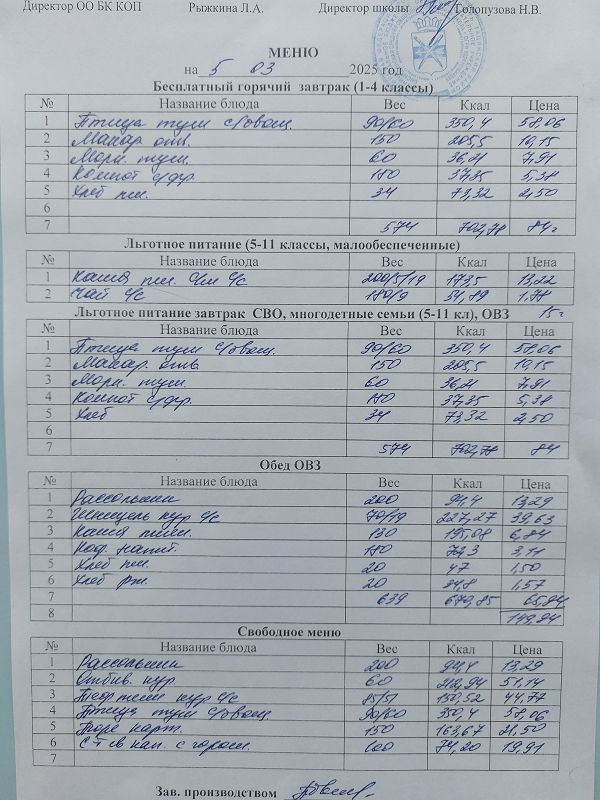 Директор ОО БК КОП Рыжкина Л.А. Директор школы Голопузова Н.В.
МЕНЮ
на 5 03 2025 год
Бесплатный горячий завтрак (1-4 классы)
№ Название блюда Вес Ккал Цена
1 Птица туш с/овощ. 90/60 350,4 58,06
2 Макар. отв. 150 205,5 10,15
3 Морк. туш. 60 36,21 7,91
4 Компот с/фр. 180 37,35 5,38
5 Хлеб пш. 34 73,32 2,50
6
7 574 702,78 84
Льготное питание (5-11 классы, малообеспеченные)
№ Название блюда Вес Ккал Цена
1 Каша пш. 200/5/19 173,5 13,22
2 Чай с/с 180/9 1,78
15
Льготное питание завтрак СВО, многодетные семьи (5-11 кл), ОВЗ
№ Название блюда Вес Ккал Цена
1 Птица туш с/овощ. 90/60 350,4 58,06
2 Макар. отв 150 205,5 10,15
3 Морк. туш. 60 36,21 7,91
4 Компот с/фр. 180 37,35 5,38
5 Хлеб 34 73,32 2,50
6
7 574 702,78 84
Обед ОВЗ
№ Название блюда Вес Ккал Цена
1 Рассольник 200 94,4 13,29
2 Шницель кур с/с 70/19 227,27 39,63
3 Каша 130 195,08 6,84
4 Коф. напит. 180 3,11
5 Хлеб пш. 20 47 1,50
6 Хлеб рж. 20 1,57
7 639 679,85 65,94
8 149,94
Свободное меню
№ Название блюда Вес Ккал Цена
1 Рассольник 200 94,4 13,29
2 Отбив. кур. 60 212,94 51,14
3 кур с/с 150,52 44,77
4 Птица туш с/овощ. 90/60 350,4 58,06
5 Пюре карт. 150 163,67 21,50
6 с горош. 100 74,20 19,91
7
Зав. производством